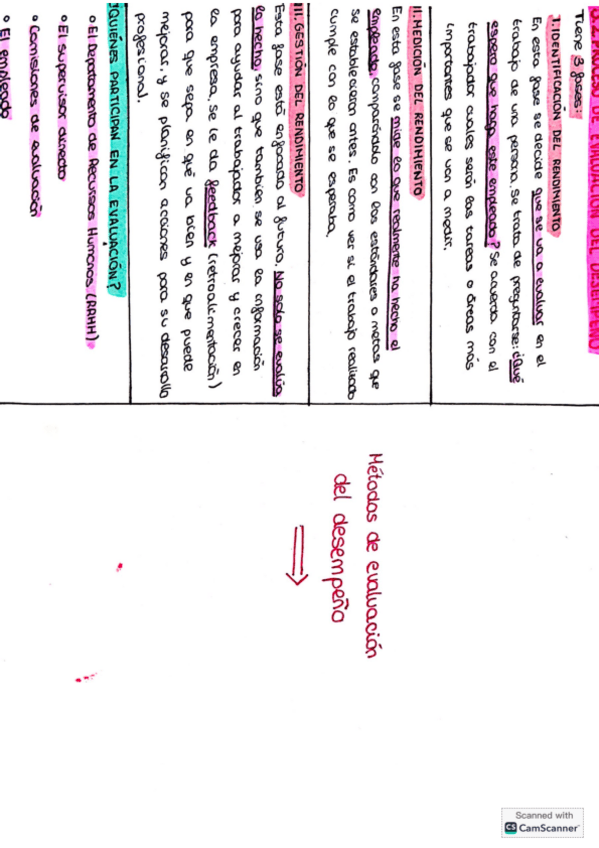 PROCESO DE EVALUACIÓN DEL DESEMPEÑO
Tiene 3 fases:
I. IDENTIFICACIÓN DEL RENDIMIENTO
En esta fase se decide que se va a evaluar en el
trabajo de una persona, se trata de preguntarse: ¿Qué
espero que haga este empleado? Se acuerda con el
trabajador cuales serán las tareas o áreas más
importantes que se van a medir.
II. MEDICIÓN DEL RENDIMIENTO
En esta fase se mide lo que realmente ha hecho el
empleado, comparándolo con los estándares o metas que
se establecieron antes. Es como ver si el trabajo realizado
cumple con lo que se esperaba.
III. GESTIÓN DEL RENDIMIENTO
Esta fase está enfocada al futuro. No solo se evalúa
lo hecho, sino que también se usa la información
para ayudar al trabajador a mejorar y crecer en
la empresa, se le da feedback (retroalimentación)
para que sepa en qué va bien y en que puede
mejorar, y se planifican acciones para su desarrollo
profesional.
¿QUIÉNES PARTICIPAN EN LA EVALUACIÓN?
El Departamento de Recursos Humanos (RRHH).
El supervisor directo
Comisiones de evaluación
El empleado
Métodos de evaluación
del desempeño
Scanned with
CS CamScanner